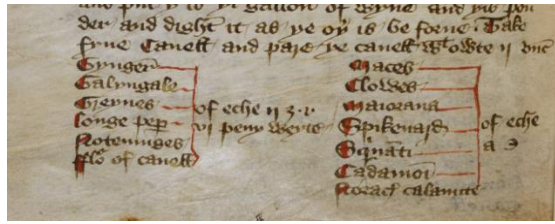 and put y to yi galion of wyne and yis pou
der and dight it as ye oyr is be forne. Take
fyne Canell and pare ye canell wt owte ii unc
Gynger
Galyngale
Greynes
longe pep
Notemuges
flo of canell
of eche ii ʒ . r
vi peny weyte
Maces
Clowes
Maiorana
Spikenard
Squnati
Cadamoi
Storacl calamite
of eche
a ℈